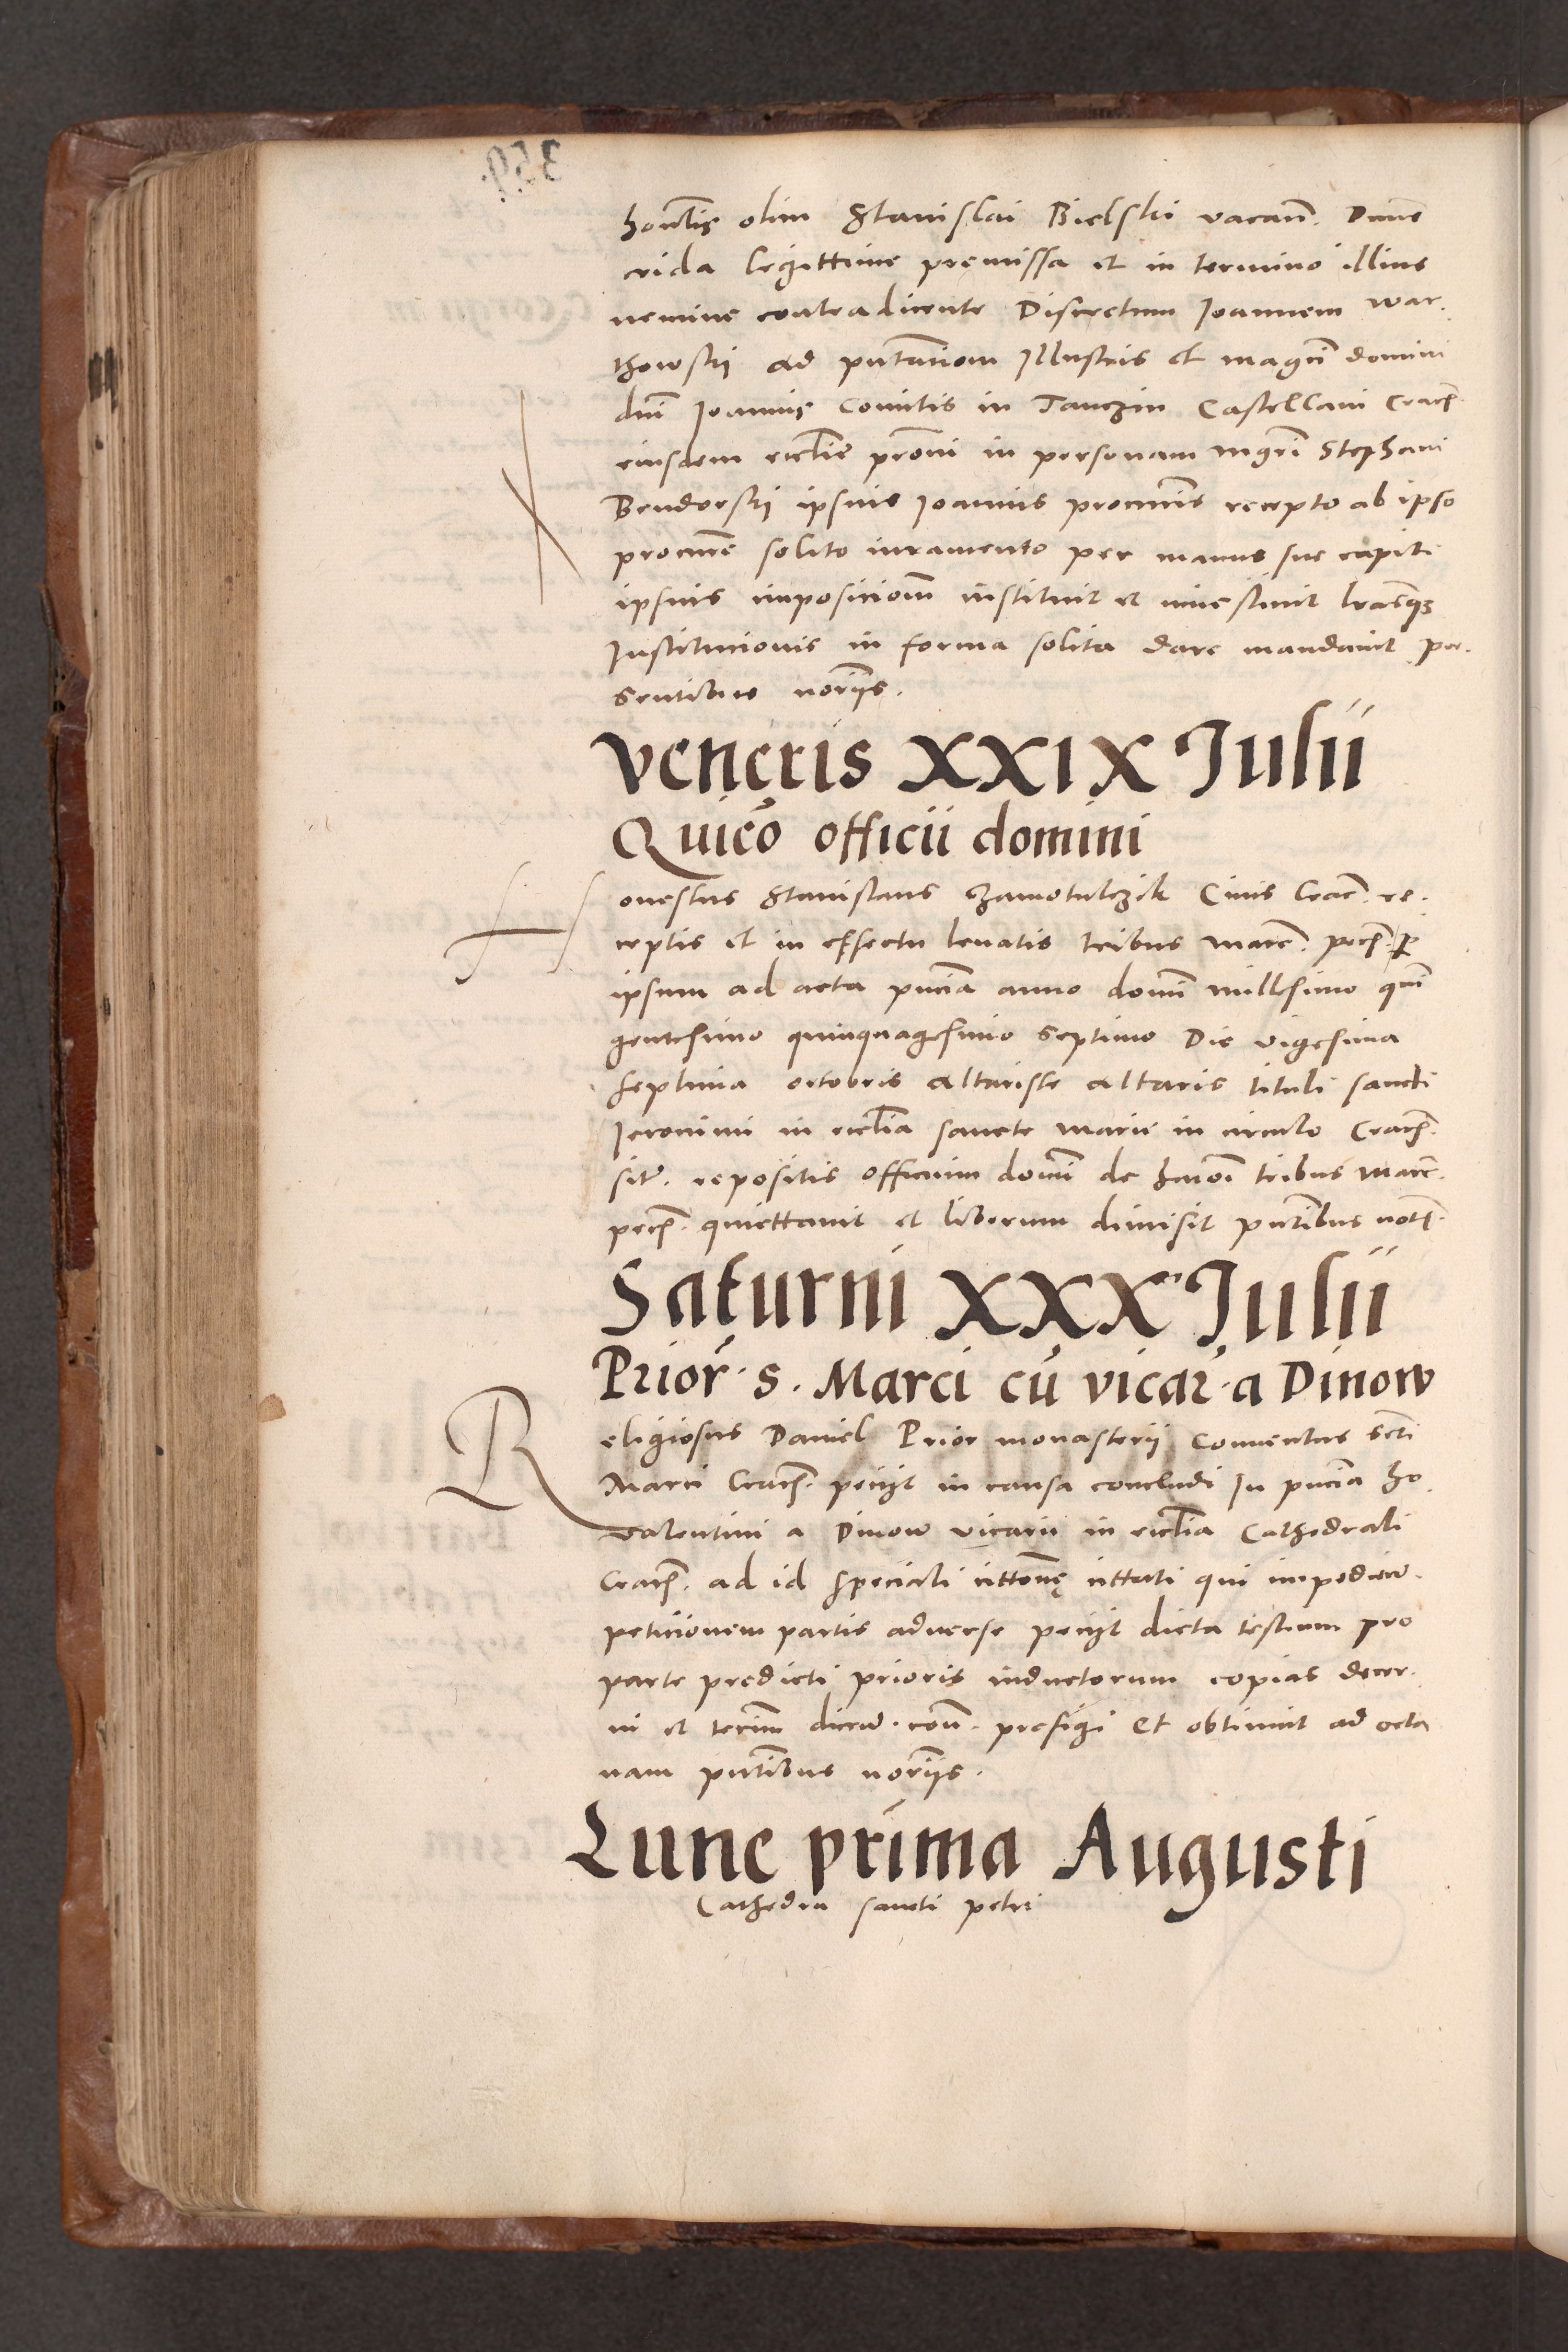 honestis olim Stanislai Bielski vacan̄. Duntaxat
crida legittime premissa et in termino illius
nemine contradicente Discretum Joannem war-
thowski ad pn̄tatiōem Illustris et magn̄i domini
dn̄i Joannis comitis in Tanczin Castellani Crac̄.
eiusdem ecctīe prōni in personam mgr̄i Stephani
Bendorski ipsius Joannis procur̄is recepto ab ipso
procur̄e solito iuramento per manus sue capiti
ipsius imposiciōm instituit et inuestiuit lr̄asq3
Institucionis in forma solita dare mandauit pre-
sentibus nor̄iis.
Veneris XXIX Julii
Quicō officii domini
Honestus Stanislaus Szamotulczik Ciuis Crac̄. re-
ceptis et in effectu leuatis tribus marc̄. pec̄. p
ipsum ad acta pn̄cia anno domī millesimo quī
gentesimo quinquagesimo septimo Die vigesima
septima octobris altariste altaris tituli sancti
Jeronimi in ecctīa sancte marie in circulo Crac̄.
sit̄. repositis officium domī de tribus marc̄.
pec̄. quiettauit et liberum dimisit pn̄tibus not̄.
Saturni XXX Julii
Prior̄. S. Marci cū vicar. a Dinow
Religiosus Daniel Prior monasterii conuentus scti
Marci Crac̄. peciit in causa concludi In pn̄cia ho.
valentini a Dinow vicarii in ecctīa Cathedrali
Crac̄. ad id speciali cittōnę cittati qui impediend.
peticionem partis aduerse peciit dicta testium pro
parte predicti prioris inductorum copias decer-
ni et term̄ dicend. con̄. prefigi et obtinuit ad octa
uam pn̄tibus nor̄iis.
Lune prima Augusti
Cathedra sancti petri